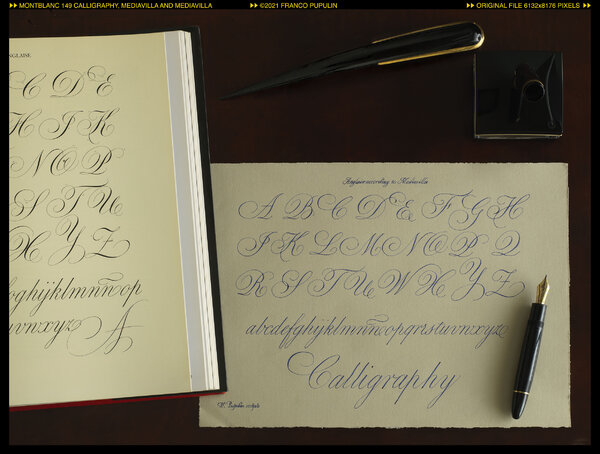 MONTBLANC 149 CALLIGRAPHY, MEDIAVILLA AND MEDIAVILLA
©2021 FRANCO PUPULIN
ORIGINAL FILE 6132x8176 PIXELS
C D E
H I K
N O P
S T U
X Y Z
ghijklmnñop
uvnxyz A
according to Mediavilla
A B C D E F G H
I K L M N O P Q
R S T U W X Y Z
abcdefghijklmnñopqrstuvnxyz
Calligraphy